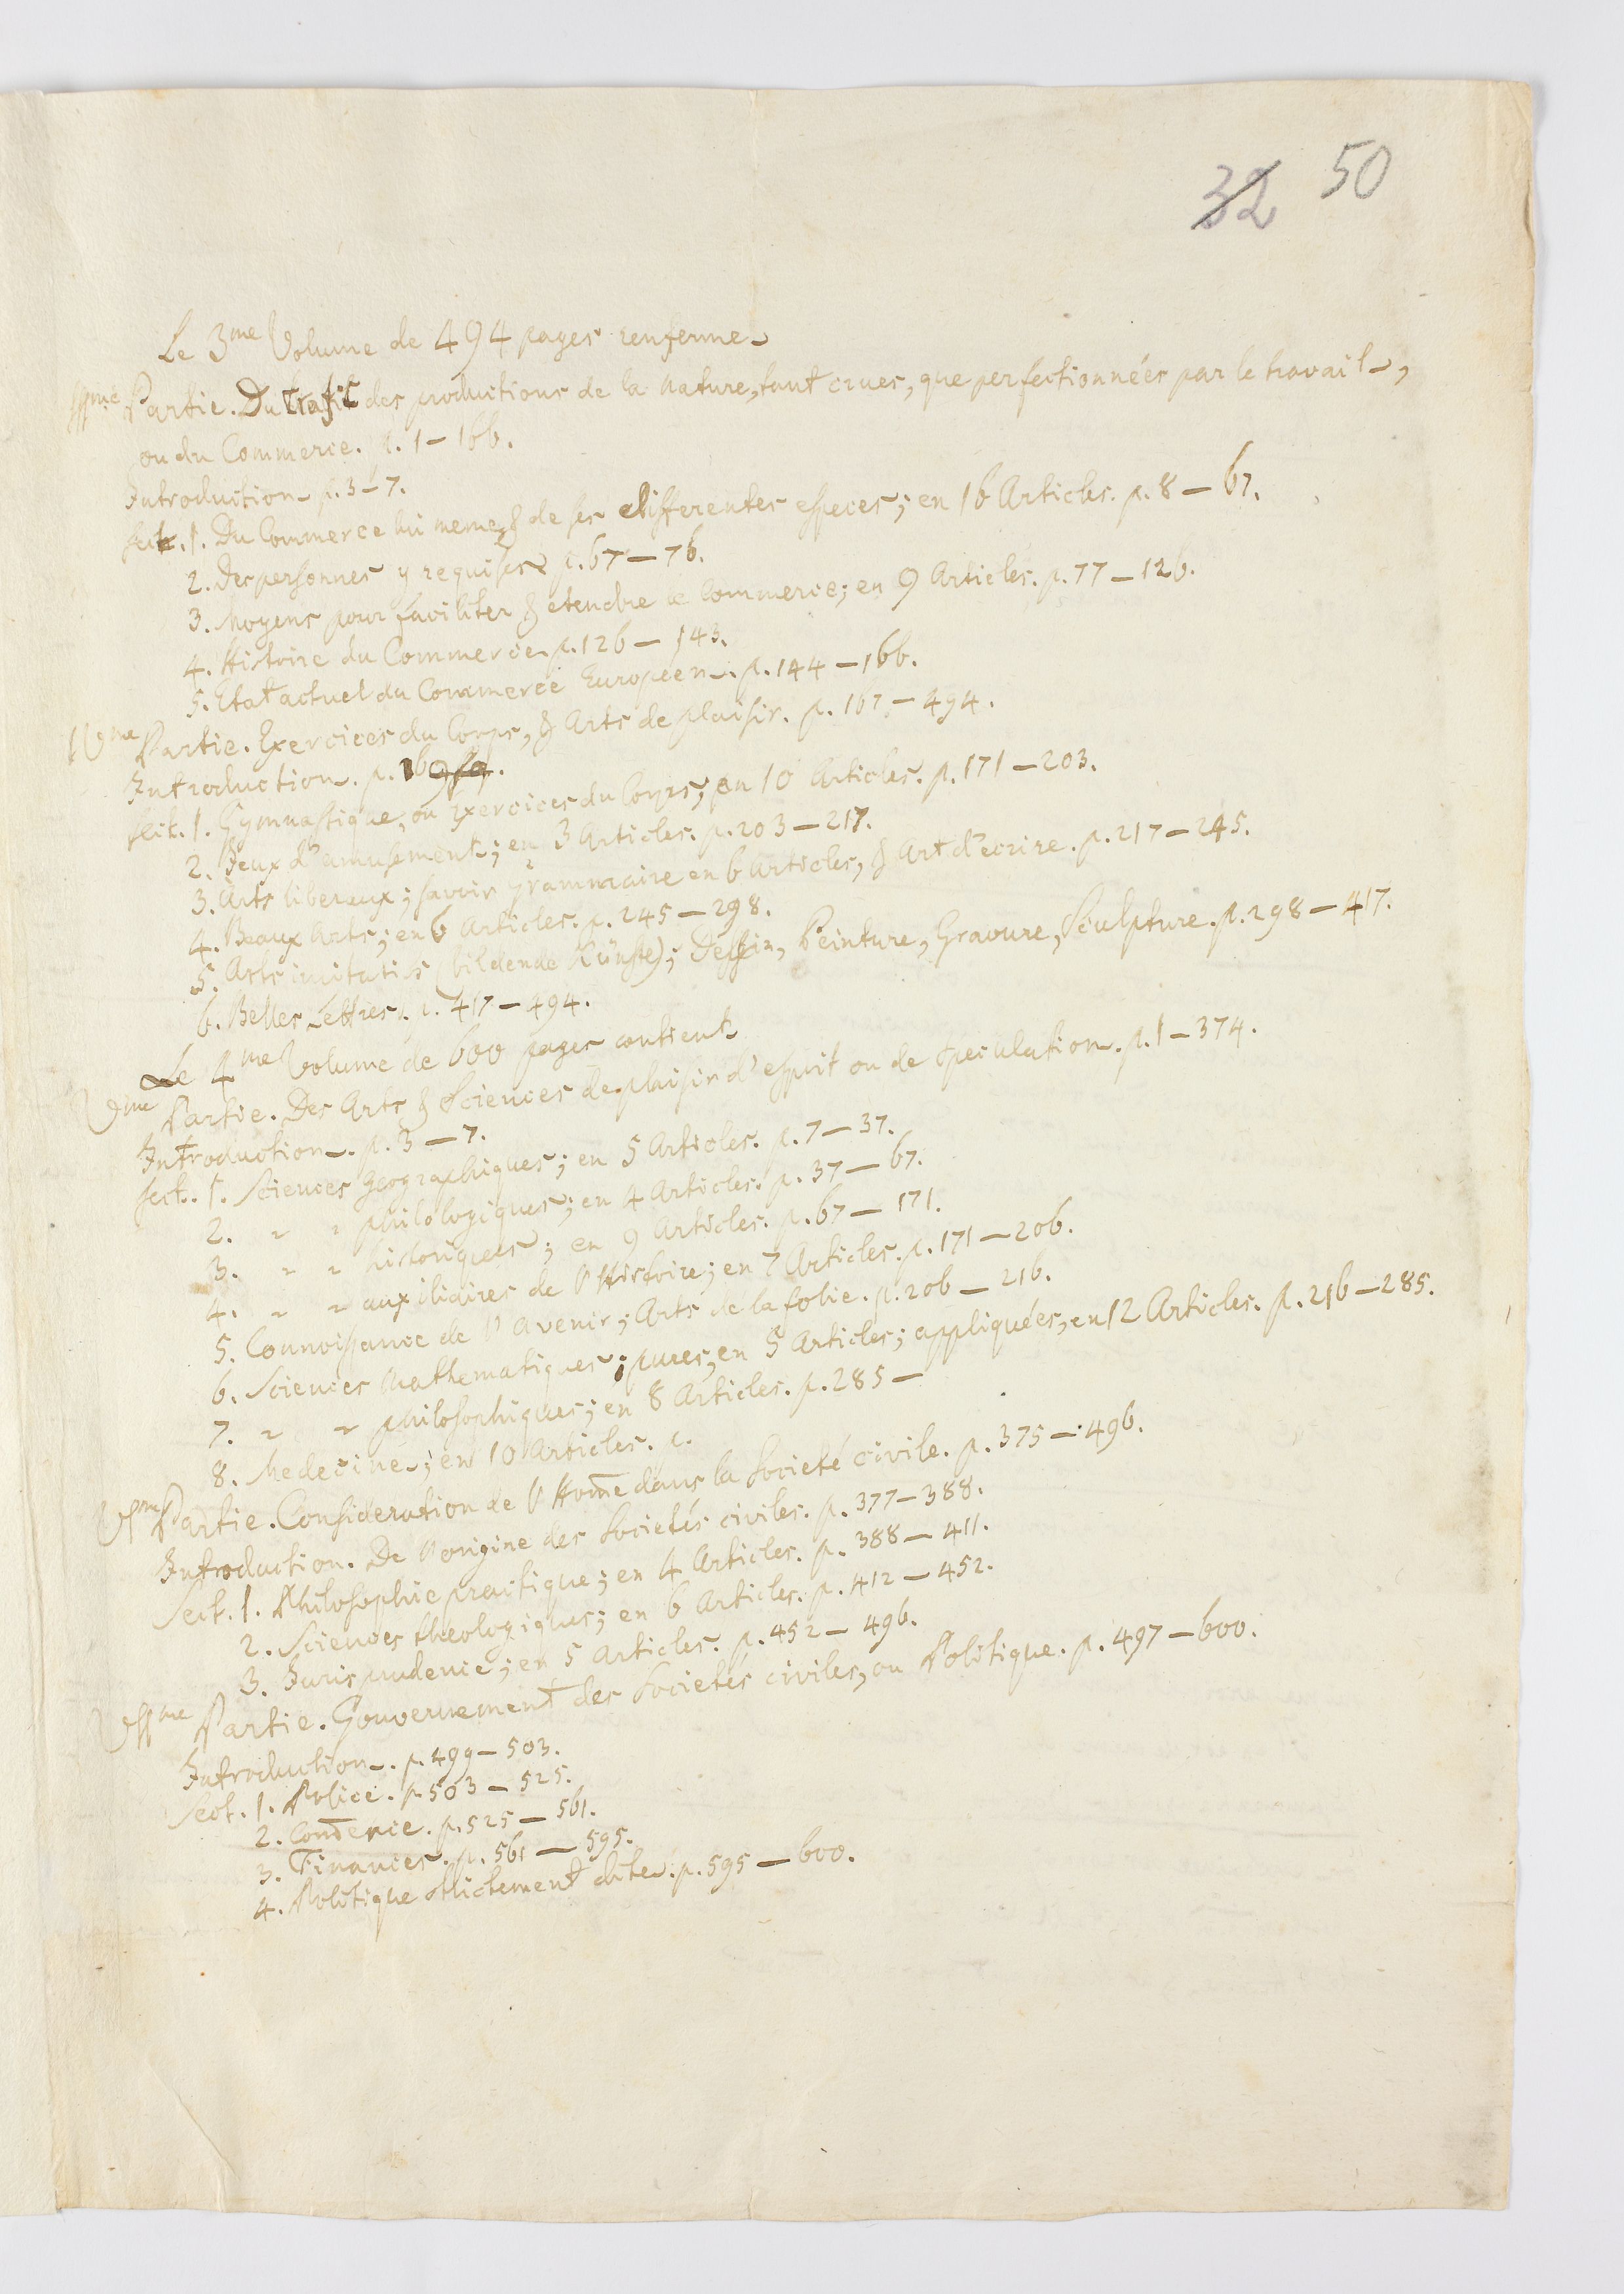 32 50
Le 3me Volume de 494 pages renferme
IIIme Partie. Du trafic des productions de la nature, tant crues, que perfectionnées par le travail,
ou du Commerce. p. 1-166.
Introduction p. 3-7.
Sect. 1. Du Commerce lui meme, & de ses differentes especes; en 16 Articles. p. 8-67.
2. Des personnes y requises p. 67-76.
3. Moyens pour faciliter & etendre le Commerce; en 9 Articles. p. 77-126.
4. Histoire du Commerce. p. 126-143.
5. Etat actuel du Commerce Européen. p. 144-166.
IVme Partie. Exercices du Corps, & Arts de plaisir. p. 167-494.
Introduction. p. 169
Sect. 1. Gymnastique, ou Exercices du Corps; en 10 Articles. p. 171-203.
2. Jeux d'amusement; en 3 Articles. p. 203-217.
3. Arts liberaux; savoir Grammaire en 6 Articles, & Art d'ecrire. p. 217-245.
4. Beaux Arts; en 6 Articles. p. 245-298.
5. Arts imitatifs (bildende Künste); Dessein, Peinture, Gravure, Sculpture. p. 298-417.
6. Belles Lettres. p. 417-494.
Le 4me Volume de 600 pages contient
Vme Partie. Des Arts & Sciences de plaisir d'esprit ou de speculation. p. 1-374.
Introduction. p. 3-7.
Sect. 1. Sciences Geographiques; en 5 Articles. p. 7-37.
2. " " philologiques; en 4 Articles. p. 37-67.
3. " " historiques; en 9 Articles. p. 67-171.
4. " " auxiliaires de l'Histoire; en 7 Articles. p. 171-206.
5. Connoissance de l'avenir; Arts de la folie. p. 206-216.
6. Sciences Mathematiques; pures, en 5 Articles; appliquées, en 12 Articles. p. 216-285.
7. " " philosophiques; en 8 Articles. p. 285-
8. Medecine; en 10 Articles. p.
VIme Partie. Consideration de l'Hom̅e dans la Societé civile. p. 375-496.
Introduction. De l'origine des Societés civiles. p. 377-388.
Sect. 1. Philosophie practique; en 4 Articles. p. 388-411.
2. Sciences theologiques; en 6 Articles. p. 412-452.
3. Jurisprudence; en 5 Articles. p. 452-496.
VIIme Partie. Gouvernement des Societés civiles, ou Politique. p. 497-600.
Introduction. p. 499-503.
Sect. 1. Police. p. 503-525.
2. p. 525-561.
3. Finances. p. 561-595.
4. Politique strictement dite. p. 595-600.